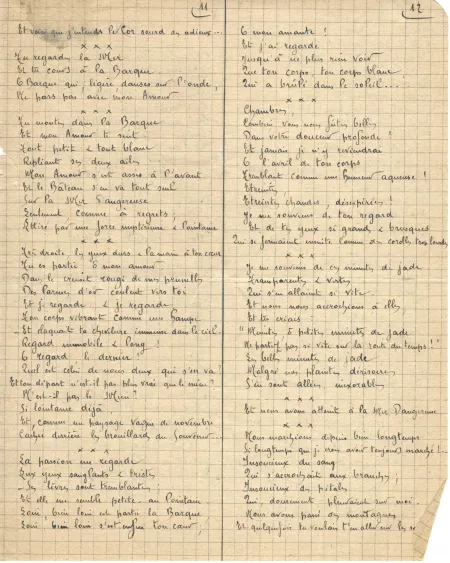 11
Et voici que j'entends le Cor sourd des adieux...
x x x
Tu regardes la Mer
Et tu cours à la Barque
O Barque qui, légère danses sur l'onde,
Ne pars pas avec mon Amour
x x x
Tu montes dans la Barque
Et mon Amour te suit
Tout petit & tout blanc
Repliant ses deux ailes
Mon Amour s'est assis à l'avant
Et le Bateau s'en va tout seul
Sur la Mer Dangereuse
Lentement comme à regrets,
Attiré par une force impérieuse & lointaine
x x x
droite, les yeux durs & la main à ton cœur
Tu es partie ô mon amour
Dans le creuset rougi de mes prunelles
De larmes d'or coulent vers toi
Et je regarde & je regarde
Ton corps vibrant comme une hampe
Et claquer ta chevelure immense dans le ciel
Regard immobile & long !
O regard, le dernier !
Quel est celui de nous deux qui s'en va ?
Et ton départ n'est-il pas plus vrai que le mien ?
N'est-il pas le Mien ?
Si lointaine déjà
Et, comme un paysage vague de novembre
derrière les brouillards du Souvenir...
x x x
La passion me regarde
Les yeux sanglants & tristes
Ses lèvres sont tremblantes
Et elle me semble petite au lointain
Loin, bien loin est partie la Barque
Loin, bien loin s'est enfui ton cœur,
12
O mon amante !
Et j'ai regardé
Jusqu'à ne plus rien voir
Que ton corps, ton corps blanc
Qui a brûlé dans le soleil...
x x x
Chambres,
Combien vous nous fûtes belles
Dans votre douceur profonde !
Et jamais je n'y reviendrai
O l'avril de ton corps
Tremblant comme une humeur aqueuse !
Etreintes,
Etreintes chaudes, désespérées !
Je me souviens de ton regard
Et de tes yeux si grands & brusques
Qui se fermaient ensuite comme des corolles trop lourdes
x x x
Je me souviens de ces minutes de jade
Transparentes & vertes
Qui s'en allaient si vite
Et nous nous accrochions à elles
Et tu criais :
"Minutes, ô petites minutes de jade
Ne partez pas si vite sur la route du temps !"
Les belles minutes de jade
Malgré nos plaintes dérisoires
S'en sont allées inexorables
x x x
Et nous avons atteint à la Mer Dangereuse
x x x
Nous marchions depuis bien longtemps
Si longtemps que je crois avoir toujours marché !...
Insoucieux du sang
Qui s'accrochait aux branches,
Insoucieux des pétales
Qui doucement pleuvaient sur moi.
Nous avons passé des montagnes
Et quelquefois tu voulais t'en aller sur les